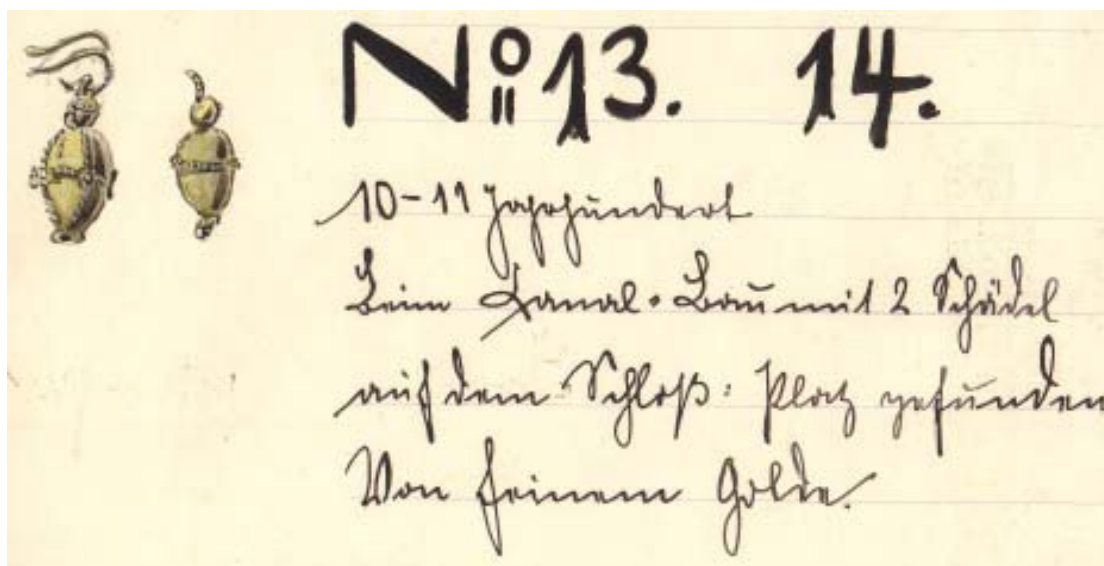 No 13. 14.
10-11 Jahrhundert
Beim Kanal-Bau mit 2 Schädel
auf dem Schloß-Platz gefunden
Von feinem Golde.